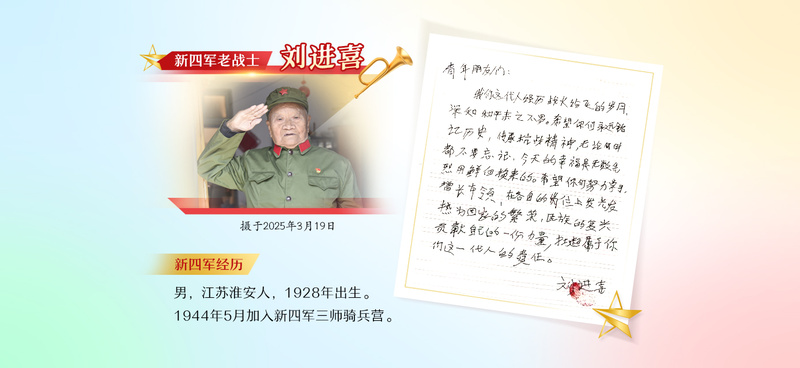 新四军老战士 刘进喜
摄于2025年3月19日
新四军经历
男，江苏淮安人，1928年出生。
1944年5月加入新四军三师骑兵营。
青年朋友们：
我们这代人经历战火纷飞的岁月，
深知和平来之不易。希望你们永远铭
记历史，传承铁军精神，无论何时
都不要忘记，今天的幸福是无数先
烈用鲜血换来的。希望你们努力学习，
增长本领，在各自的岗位上发光发
热，为国家的繁荣，民族的复兴
贡献自己的一份力量，扛起属于你
们这一代人的责任。
刘进喜